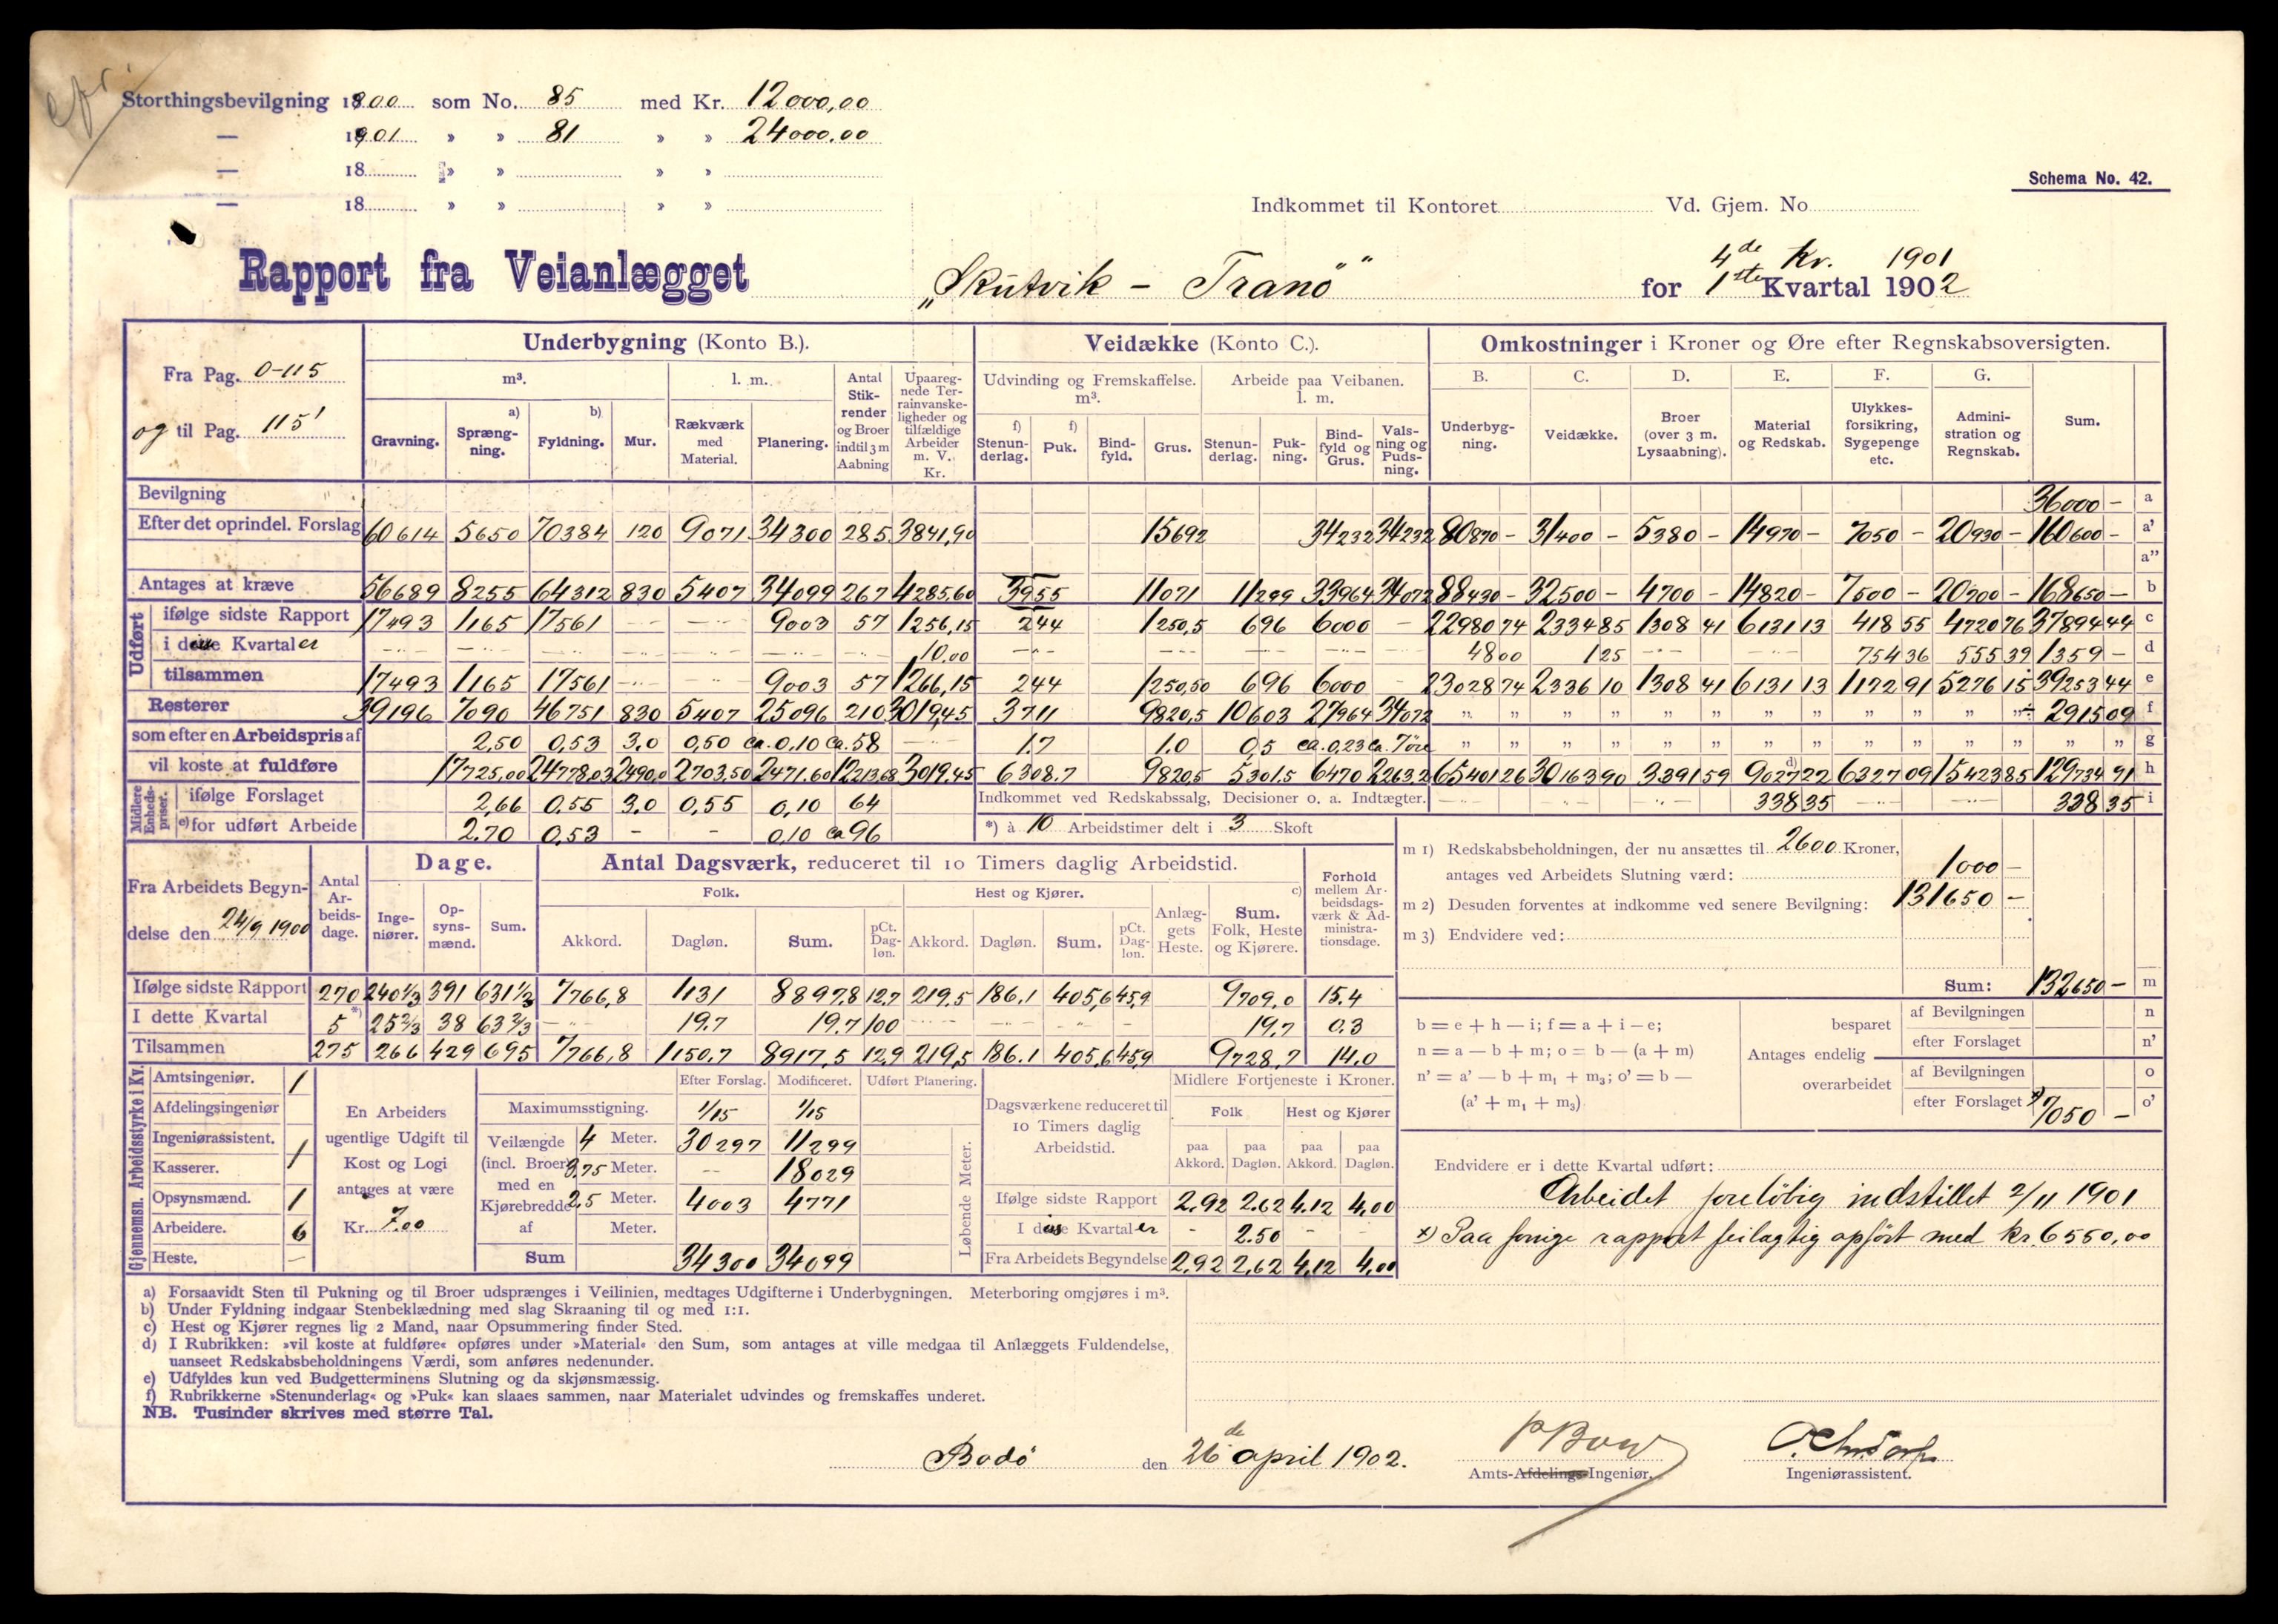 Storthingsbevilgning 1900 som No. 85 med Kr. 12000,00
— 1901 » » 81 » » 24000.00
— 18 » » » »
— 18 » » » »
Schema No. 42.
Indkommet til Kontoret Vd. Gjem. No
4de Kv. 1901
Rapport fra Veianlægget „Skutvik - Tranö“ for 1ste Kvartal 1902
Fra Pag. 0-115
og til Pag. 115'
Underbygning (Konto B.). Veidække (Konto C.). Omkostninger i Kroner og Øre efter Regnskabsoversigten.
m³. l. m. Antal Stikrender og Broer indtil 3 m Aabning Upaaregnede Terrainvanskeligheder og tilfældige Arbeider m. V. Kr. Udvinding og Fremskaffelse. m³. Arbeide paa Veibanen. l. m. B. C. D. E. F. G.
Gravning. a) Sprængning. b) Fyldning. Mur. Rækværk med Material. Planering. f) Stenunderlag. f) Puk. Bindfyld. Grus. Stenunderlag. Pukning. Bindfyld og Grus. Valsning og Pudsning. Underbygning. Veidække. Broer (over 3 m. Lysaabning). Material og Redskab. Ulykkesforsikring, Sygepenge etc. Administration og Regnskab. Sum.
Bevilgning 36000 - a
Efter det oprindel. Forslag 60614 5650 70384 120 9071 34300 285 3841,90 15692 34232 34232 80870 - 31400 - 5380 - 14970 - 7050 - 20930 - 160600 - a'
a''
Antages at kræve 56689 8255 64312 830 5407 34099 267 4285,60 3955 11071 11299 33964 34072 88430 - 32500 - 4700 - 14820 - 7500 - 20700 - 168650 - b
Udført ifølge sidste Rapport 17493 1165 17561 - - 9003 57 1256,15 244 1250,5 696 6000 - 22980 74 2334 85 1308 41 6131 13 418 55 4720 76 37894 44 c
i disse Kvartaler 10,00 48 00 1 25 754 36 555 39 1359 - d
tilsammen 17493 1165 17561 - - 9003 57 1266,15 244 1250,50 696 6000 - 23028 74 2336 10 1308 41 6131 13 1172 91 5276 15 39253 44 e
Resterer 39196 7090 46751 830 5407 25096 210 3019,45 3711 9820,5 10603 27964 34072 " " " " " " " " " " " " ÷ 2915 09 f
som efter en Arbeidspris af 2,50 0,53 3,0 0,50 ca. 0,10 ca. 58 - 1.7 1.0 0,5 ca. 0,23 ca. 7 öre " " " " " " " " " " " " " " g
vil koste at fuldføre 17725,00 24778,03 2490,0 2703,50 2471.60 12213,68 3019.45 6308.7 9820,5 5301.5 6470 2263,2 65401 26 30163 90 3391 59 d) 9027 22 6327 09 15423 85 129734 91 h
Midlere Enhedspriser. ifølge Forslaget 2,66 0.55 3.0 0,55 0,10 64 Indkommet ved Redskabssalg, Decisioner o. a. Indtægter. 338 35 338 35 i
e) for udført Arbeide 2.70 0,53 - - 0,10 ca 96 *) à 10 Arbeidstimer delt i 3 Skoft
Fra Arbeidets Begyndelse den 24/9 1900
Antal Arbeidsdage. Dage. Antal Dagsværk, reduceret til 10 Timers daglig Arbeidstid. Forhold mellem Arbeidsdagsværk & Administrationsdage.
Ingeniører. Opsynsmænd. Sum. Folk. Hest og Kjører. Anlæggets Heste. c) Sum. Folk, Heste og Kjørere.
Akkord. Dagløn. Sum. pCt. Dagløn. Akkord. Dagløn. Sum. pCt. Dagløn.
Ifølge sidste Rapport 270 240 1/3 391 631 1/3 7766,8 1131 8897.8 12.7 219,5 186.1 405,6 45,9 9709,0 15.4
I dette Kvartal 5 *) 25 2/3 38 63 2/3 - 19.7 19.7 100 19.7 0.3
Tilsammen 275 266 429 695 7766,8 1150.7 8917,5 12.9 219,5 186.1 405,6 45,9 9728,7 14.0
m 1) Redskabsbeholdningen, der nu ansættes til 2600 Kroner,
antages ved Arbeidets Slutning værd: 1000 -
m 2) Desuden forventes at indkomme ved senere Bevilgning: 131650 -
m 3) Endvidere ved:
Sum: 132650 - m
b = e + h — i; f = a + i — e;
n = a — b + m; o = b — (a + m)
n' = a' — b + m₁ + m₃; o' = b —
(a' + m₁ + m₃)
Antages endelig besparet af Bevilgningen n
efter Forslaget n'
overarbeidet af Bevilgningen o
efter Forslaget x) 7050 - o'
Gjennemsn. Arbeidsstyrke i Kv.
Amtsingeniør. 1
Afdelingsingeniør
Ingeniørassistent. 1
Kasserer.
Opsynsmænd. 1
Arbeidere. 6
Heste. —
En Arbeiders ugentlige Udgift til Kost og Logi antages at være Kr. 7.00
Efter Forslag. Modificeret. Udført Planering.
Maximumsstigning. 1/15 1/15
Veilængde (incl. Broer) med en Kjørebredde af
4 Meter. 30297 11299
3,75 Meter. -- 18029
2,5 Meter. 4003 4771
Meter.
Sum 34300 34099
Løbende Meter.
Dagsværkene reduceret til 10 Timers daglig Arbeidstid.
Midlere Fortjeneste i Kroner.
Folk Hest og Kjører
paa Akkord. paa Dagløn. paa Akkord. paa Dagløn.
Ifølge sidste Rapport 2,92 2.62 4.12 4,00
I disse Kvartaler - 2.50 - -
Fra Arbeidets Begyndelse 2,92 2,62 4,12 4,00
Endvidere er i dette Kvartal udført:
Arbeidet foreløbig indstillet 2/11 1901
x) Paa forrige rapport feilagtig opført med kr. 6550,00
a) Forsaavidt Sten til Pukning og til Broer udsprænges i Veilinien, medtages Udgifterne i Underbygningen. Meterboring omgjøres i m³.
b) Under Fyldning indgaar Stenbeklædning med slag Skraaning til og med 1:1.
c) Hest og Kjører regnes lig 2 Mand, naar Opsummering finder Sted.
d) I Rubrikken: »vil koste at fuldføre« opføres under »Material« den Sum, som antages at ville medgaa til Anlæggets Fuldendelse,
uanseet Redskabsbeholdningens Værdi, som anføres nedenunder.
e) Udfyldes kun ved Budgetterminens Slutning og da skjønsmæssig.
f) Rubrikkerne »Stenunderlag« og »Puk« kan slaaes sammen, naar Materialet udvindes og fremskaffes underet.
NB. Tusinder skrives med større Tal.
Bodö den 26de april 1902.
Amts-Afdelings-Ingeniør. Ingeniørassistent.